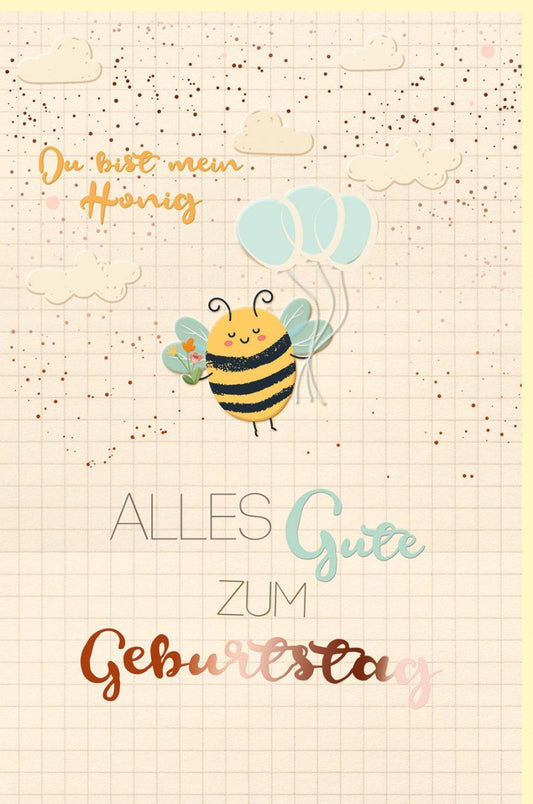 Du bist mein
Honig
ALLES Gute
ZUM
Geburtstag